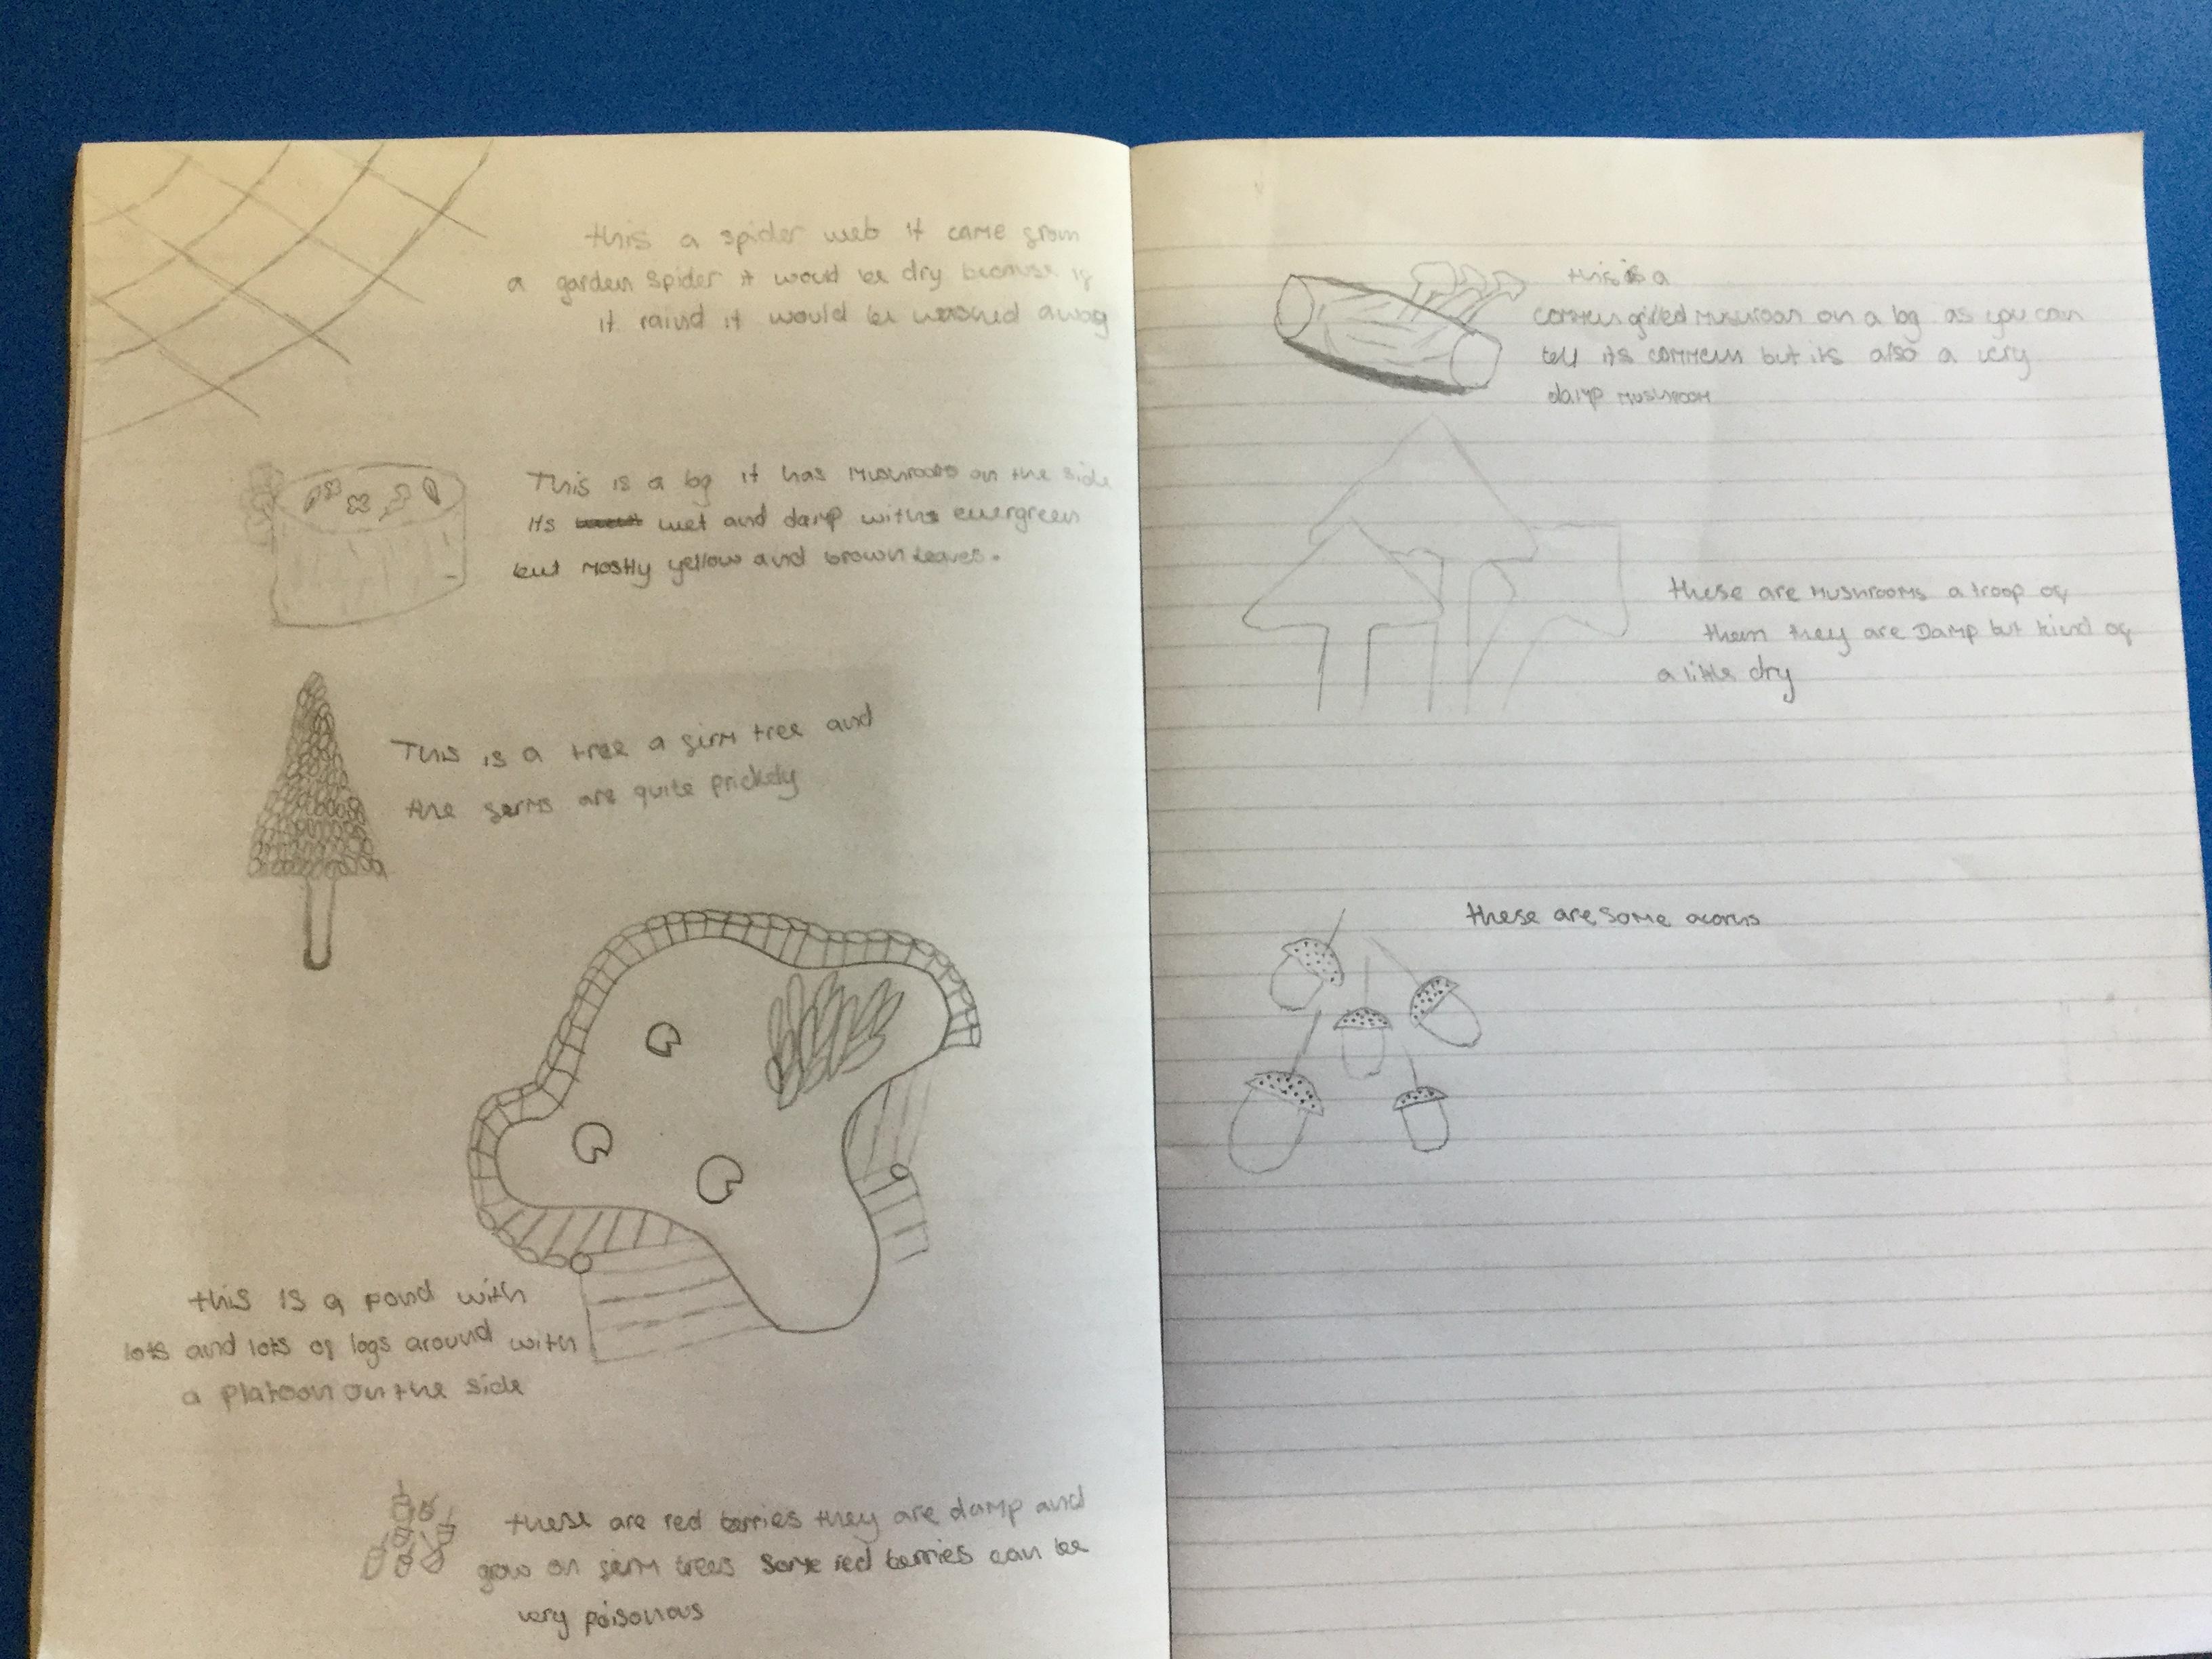 this a spider web it came from
a garden spider it would be dry because if
it raind it would be washed away
This is a log it has mushrooms on the side
its wet and damp with evergreen
but mostly yellow and brown leaves.
This is a tree a firm tree and
the ferms are quite prickely
this is a pond with
lots and lots of logs around with
a platoon on the side
these are red berries they are damp and
grow on firm trees some red berries can be
very poisonous
this is a
commen gilled mushroom on a log as you can
tell its commen but its also a very
damp mushroom
these are mushrooms a troop of
them they are Damp but kind of
a little dry
these are some acorns